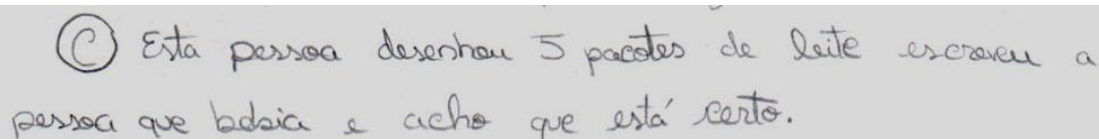 Ⓒ Esta pessoa desenhou 5 pacotes de leite escreveu a
pessoa que bebia e acho que está certo.